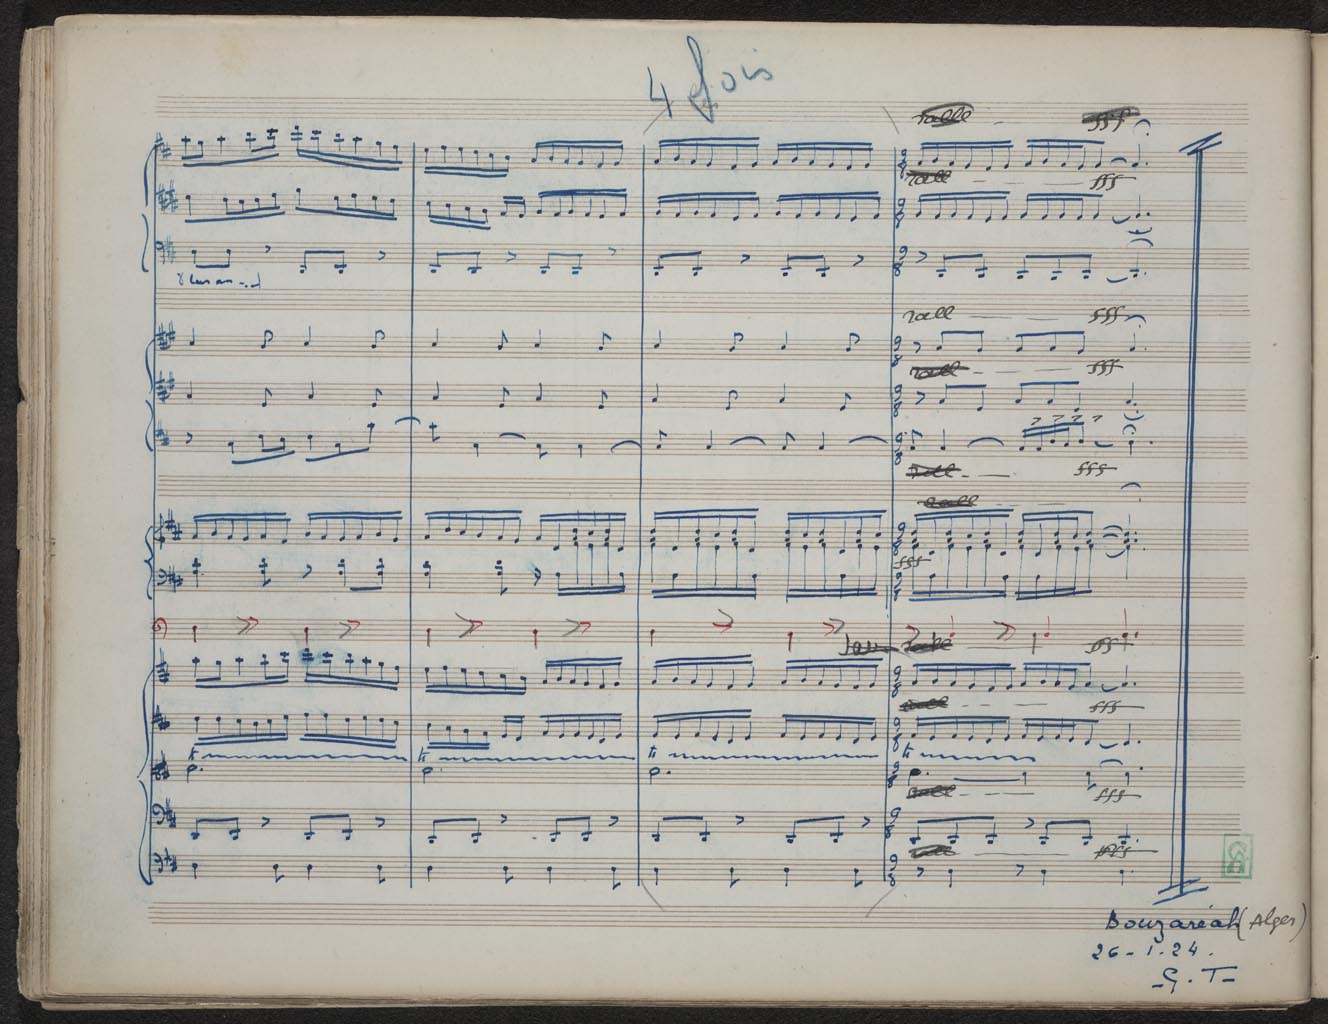 4 fois
rall
fff
rall
fff
rall
fff
rall
fff
rall
fff
rall
fff
fff
rall
fff
tr
tr
tr
tr
rall
fff
rall
fff
Bouzaréah (Alger)
26-1-24.
-G.T-